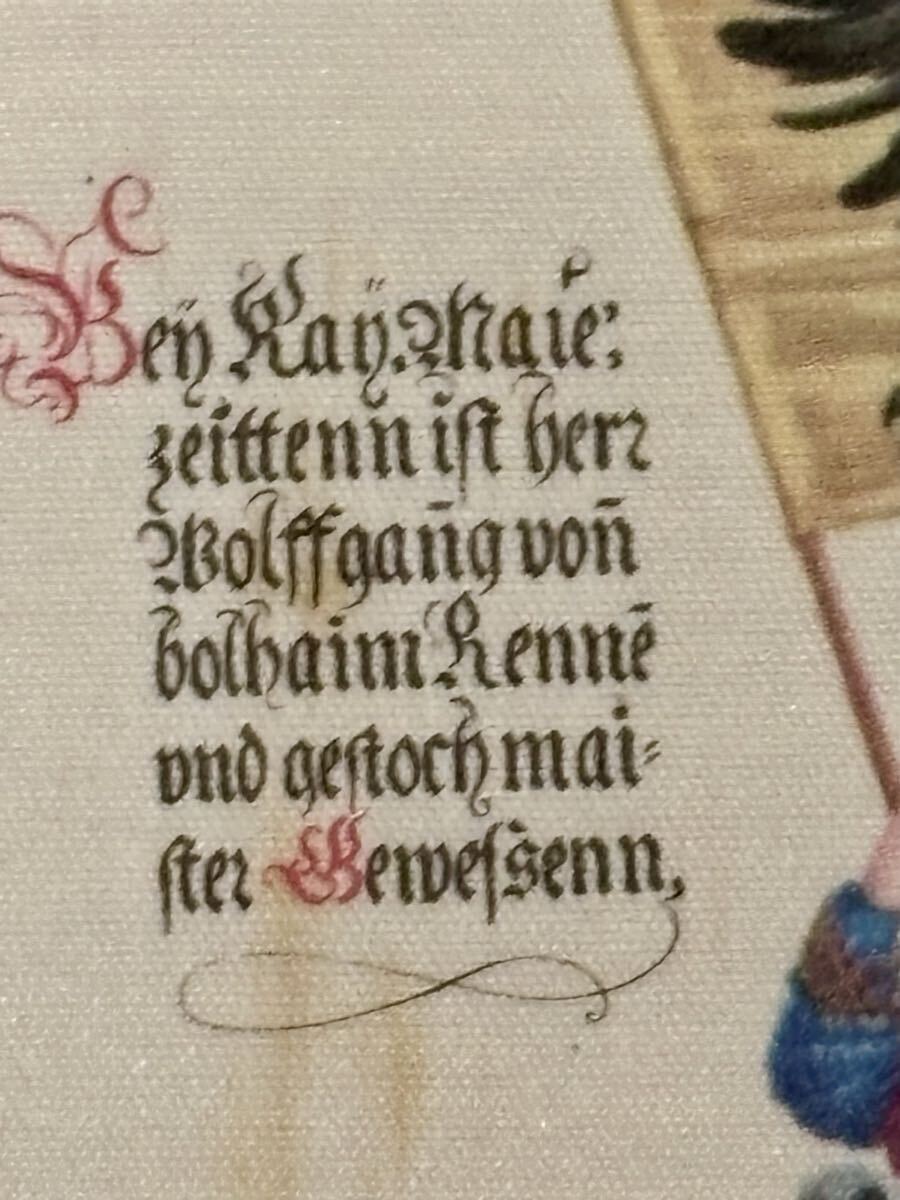 Beÿ Kaÿ. Maie:
zeittenn ist herr
Wolffgan̄g von̄
bolhaim Rennē
vnd gestoch mai-
ster Gewessenn,